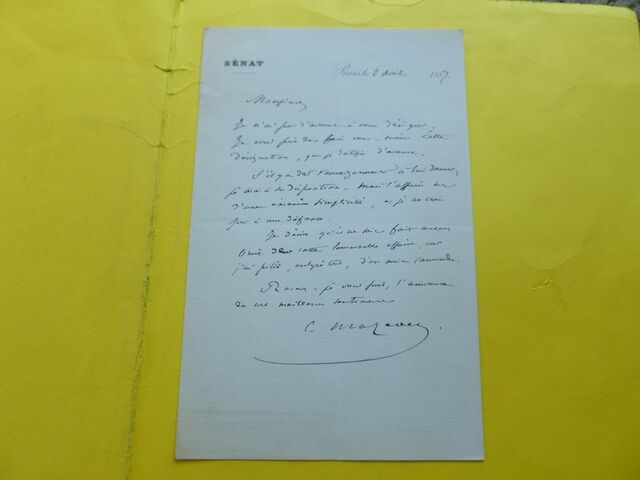 SÉNAT
Paris le 2 avril 1887.
Monsieur,
Je n'ai pas d'avoué à vous désigner.
Je vous prie de faire vous-même cette
désignation, que je ratifie d'avance.
S'il y a des renseignements à lui donner
je suis à sa disposition - Mais l'affaire est
d'une extrême simplicité, et je ne crois
pas à une défense.
Je désire qu'il ne soit fait aucun
bruit de cette affaire, car
j'ai pitié, malgré tout, d'un ancien camarade.
Recevez, je vous prie, l'assurance
de mes meilleurs sentiments
C. Mazeau.